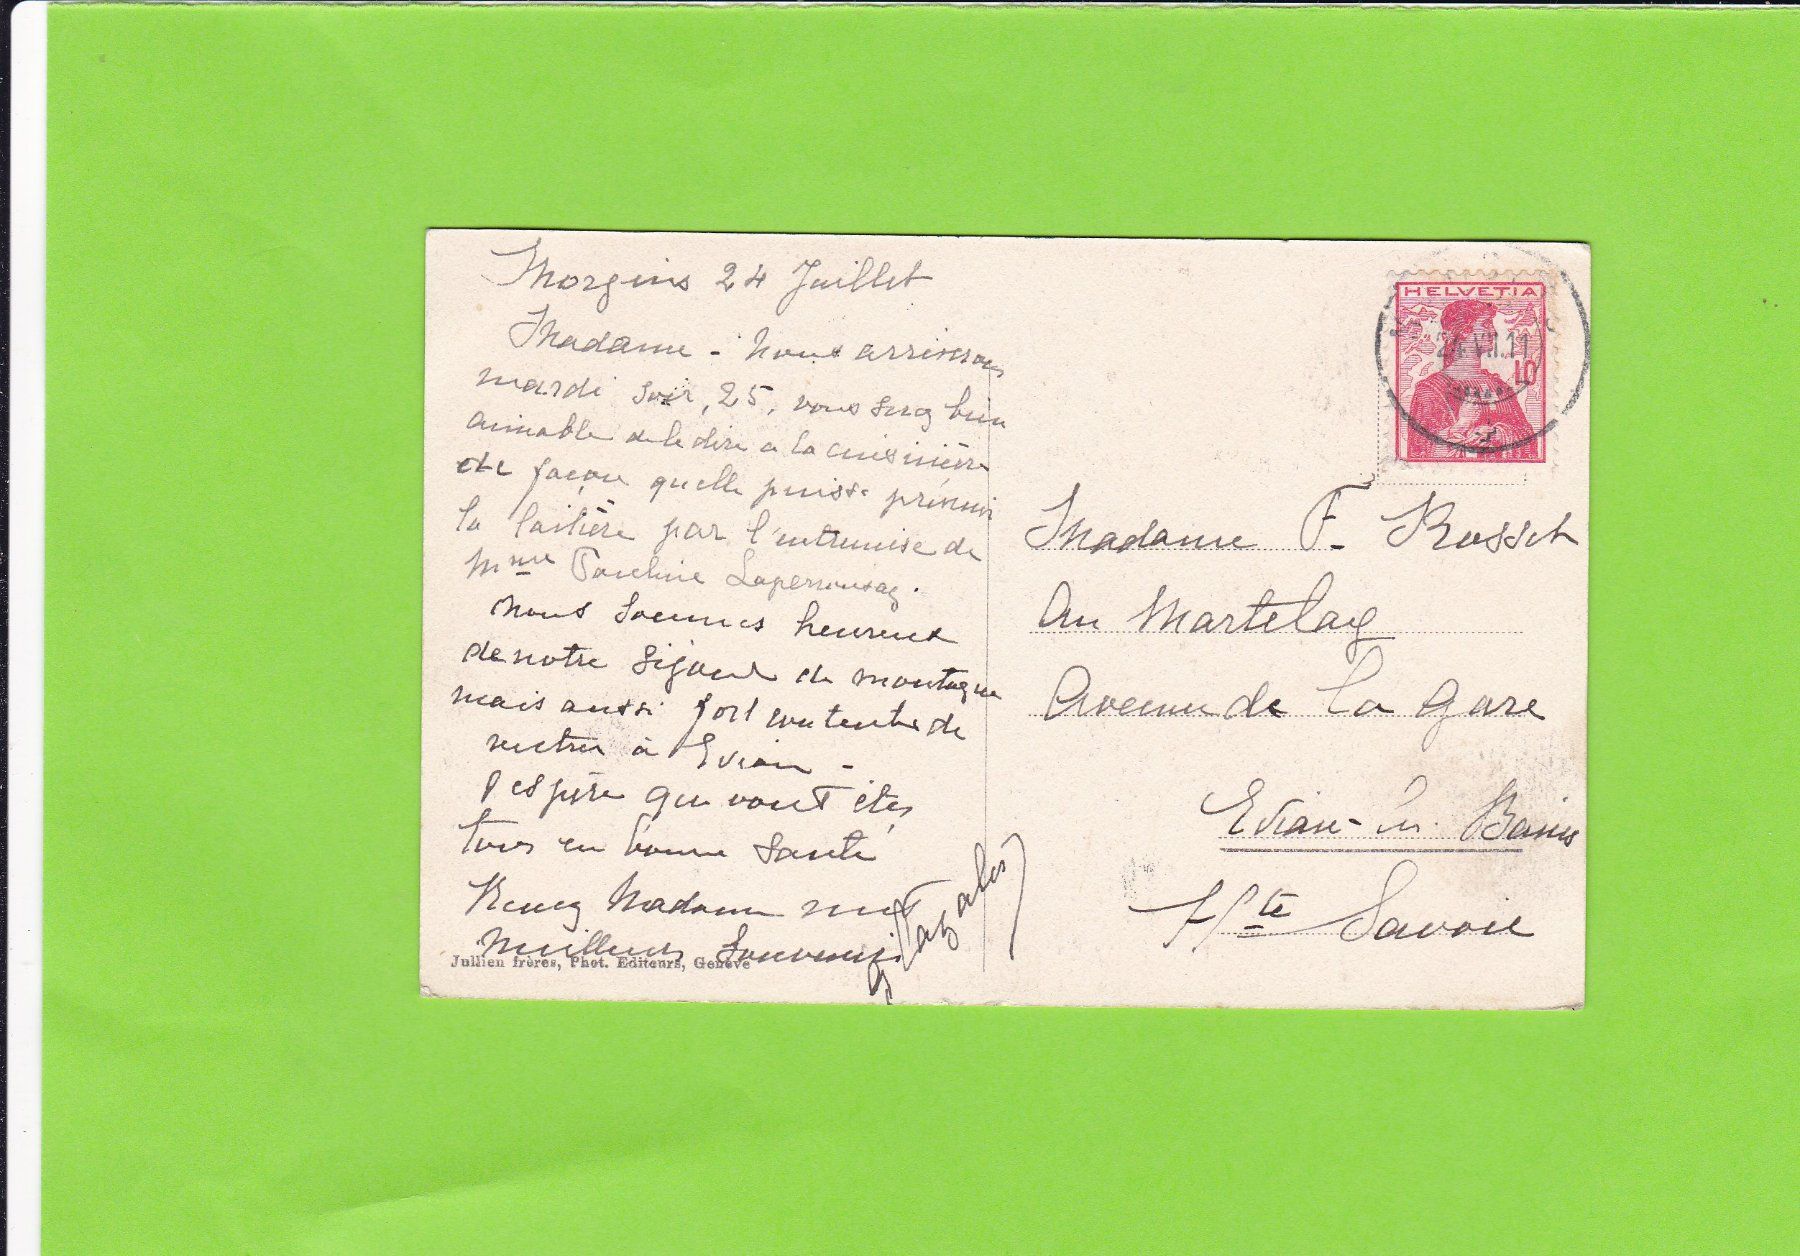 Morgins 24 Juillet
Madame - Nous arriverons
mardi soir, 25, vous serez bien
aimable de le dire a la cuisinière
de façon quelle puisse prévenir
la laitière par l'entremise de
Mme Pauline Laperrousaz.
Nous sommes heureux
de notre séjour de montagne
mais aussi fort contents de
rentrer à Evian -
J'espère que vous êtes
tous en bonne santé
Recevez Madame mes
meilleurs souvenirs
Jullien frères, Phot. Editeurs, Genève
HELVETIA
24.VII.11
10
Madame F. Rosset
Au Martelay
Avenue de la Gare
Evian-les-Bains
Hte Savoie